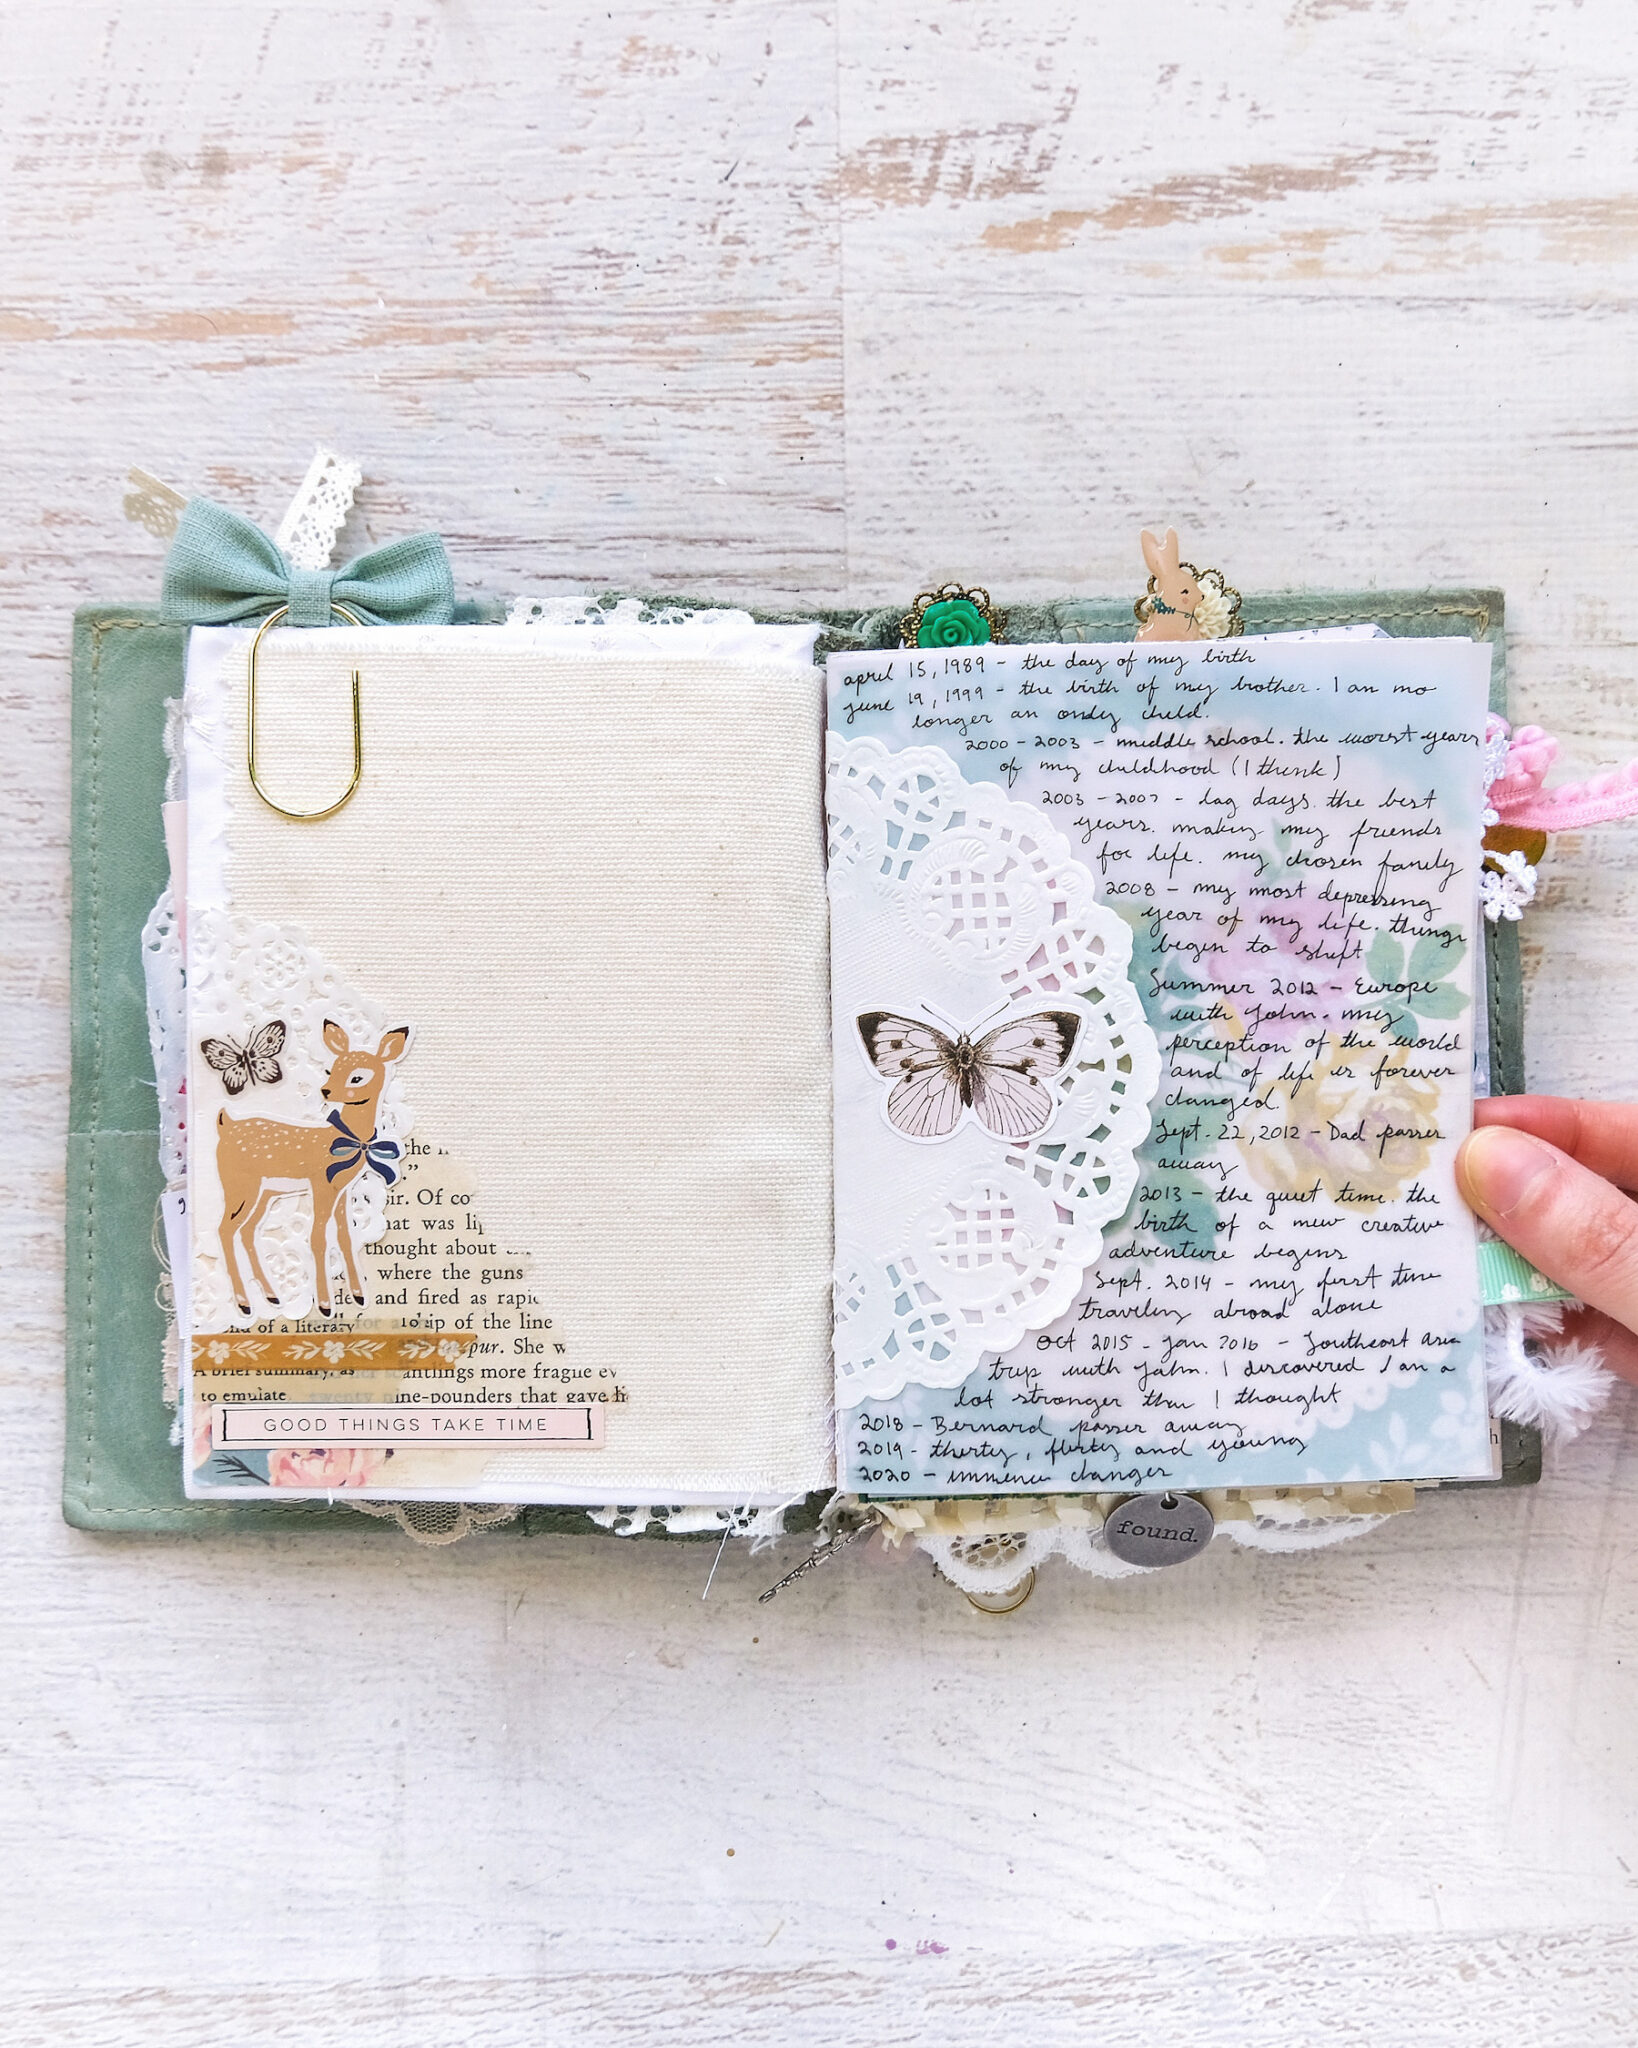 the
.”
sir. Of co
hat was lip
thought about
, where the guns
de and fired as rapi
of a literary for a ip of the line
pur. She w
A brief summary, as scantlings more frague ev
to emulate twenty nine-pounders that gave h
GOOD THINGS TAKE TIME
april 15, 1989 - the day of my birth
june 19, 1999 - the birth of my brother. I am no
longer an only child.
2000 - 2003 - middle school. the worst years
of my childhood (I think)
2003 - 2007 - lag days. the best
years. making my friends
for life. my chosen family
2008 - my most depressing
year of my life. things
began to shift
Summer 2012 - Europe
with John. my
perception of the world
and of life is forever
changed.
Sept. 22, 2012 - Dad passes
away
2013 - the quiet time. the
birth of a new creative
adventure begins
Sept. 2014 - my first time
traveling abroad alone
Oct 2015 - Jan 2016 - Southeast asia
trip with John. I discovered I am a
lot stronger than I thought
2018 - Bernard passes away
2019 - thirty, flirty and young
2020 - immense changes
found.